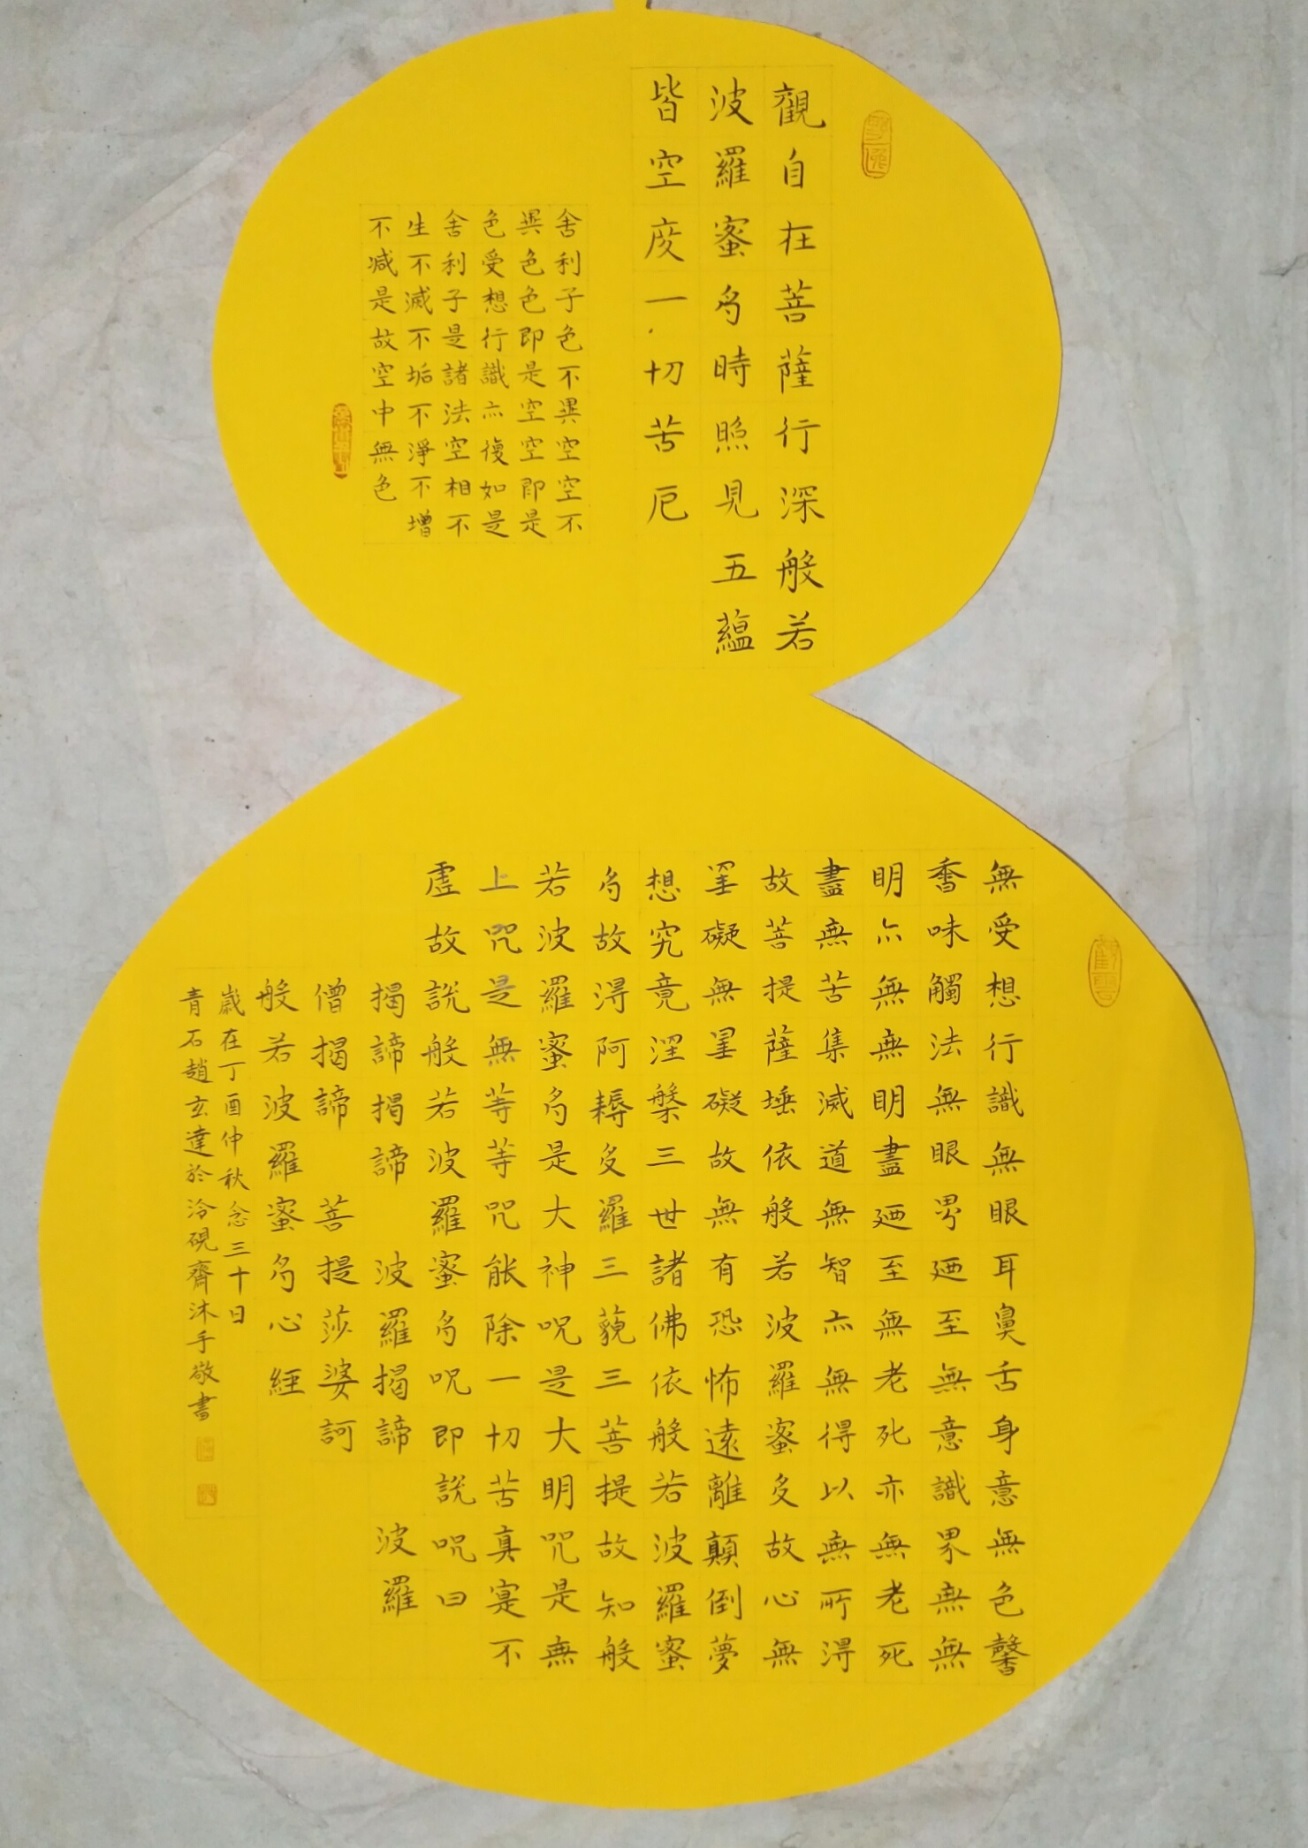 觀自在菩薩行深般若
波羅蜜多時照見五蘊
皆空度一切苦厄
舍利子色不異空空不
異色色即是空空即是
色受想行識亦復如是
舍利子是諸法空相不
生不滅不垢不淨不增
不減是故空中無色
無受想行識無眼耳鼻舌身意無色聲
香味觸法無眼界廼至無意識界無無
明亦無無明盡廼至無老死亦無老死
盡無苦集滅道無智亦無得以無所得
故菩提薩埵依般若波羅蜜多故心無
罣礙無罣礙故無有恐怖遠離顛倒夢
想究竟涅槃三世諸佛依般若波羅蜜
多故得阿耨多羅三藐三菩提故知般
若波羅蜜多是大神咒是大明咒是無
上咒是無等等咒能除一切苦真寔不
虛故說般若波羅蜜多咒即說咒曰
揭諦揭諦 波羅揭諦 波羅
僧揭諦 菩提莎婆訶
般若波羅蜜多心經
歲在丁酉仲秋念三十日
青石趙玄達於泠硯齋沐手敬書